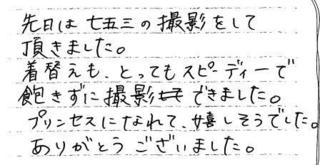 先日は七五三の撮影をして
頂きました。
着替えも、とってもスピーディーで
飽きずに撮影できました。
プリンセスになれて、嬉しそうでした。
ありがとうございました。